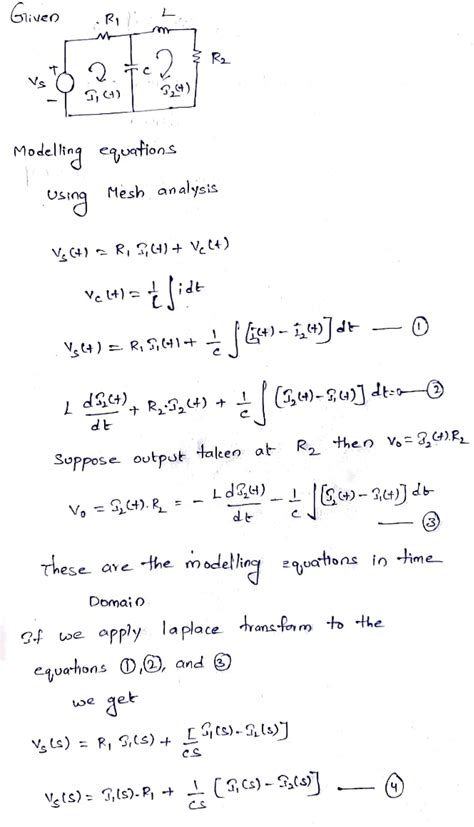 Given
R₁
L
Vs
+
-
I₁(t)
C
I₂(t)
R₂
Modelling equations
Using Mesh analysis
Vs(t) = R₁ I₁(t) + Vc(t)
Vc(t) = 1/C ∫ i dt
Vs(t) = R₁ I₁(t) + 1/C ∫ [I₁(t) - I₂(t)] dt — ①
L dI₂(t)/dt + R₂·I₂(t) + 1/C ∫ [I₂(t) - I₁(t)] dt = 0 — ②
Suppose output taken at R₂ then V₀ = I₂(t).R₂
V₀ = I₂(t).R₂ = - L dI₂(t)/dt - 1/C ∫ [I₂(t) - I₁(t)] dt
— ③
These are the modelling equations in time
Domain
If we apply laplace transform to the
equations ①,②, and ③
we get
Vs(s) = R₁ I₁(s) + [I₁(s) - I₂(s)]/cs
Vs(s) = I₁(s).R₁ + 1/cs [I₁(s) - I₂(s)] — ④